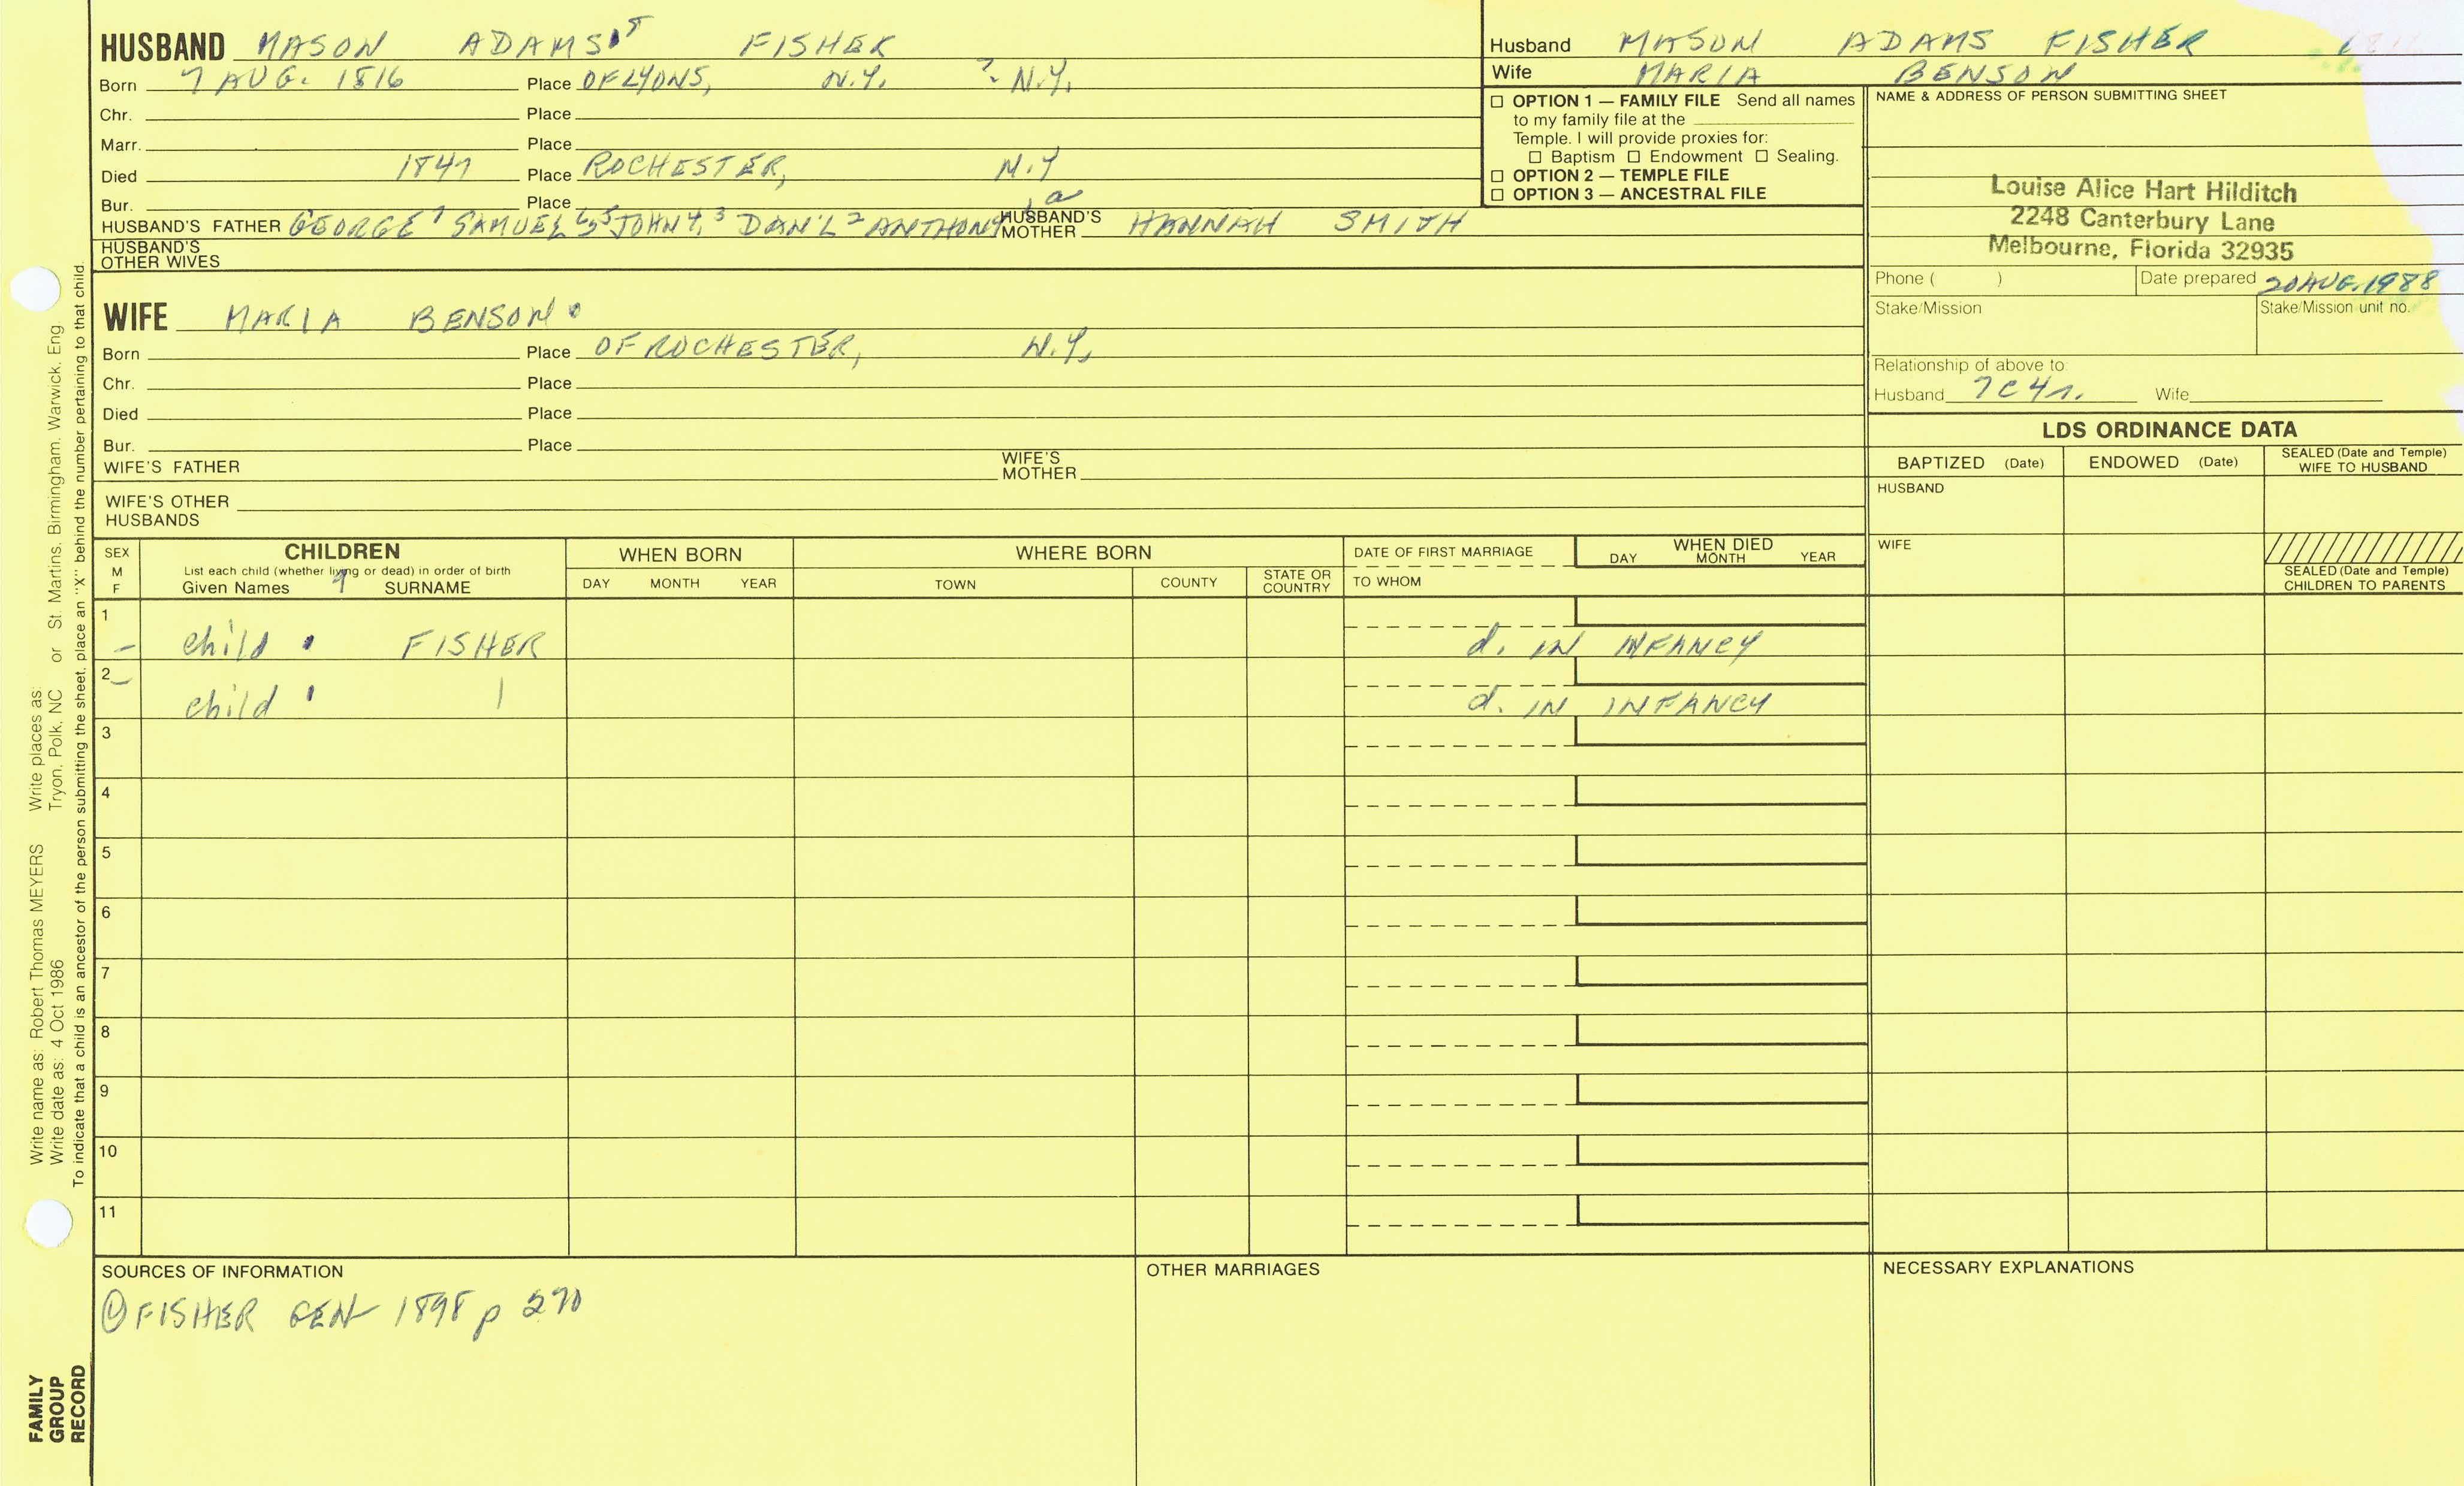 HUSBAND MASON ADAMS 8 FISHER
Born 7 AUG. 1816 Place OF LYONS, N.Y. ? N.Y.
Chr. Place
Marr. Place
Died 1847 Place ROCHESTER, N.Y
Bur. Place
HUSBAND'S FATHER GEORGE 7 SAMUEL 6,5 JOHN 4,3 DAN'L 2 ANTHONY 1 a HUSBAND'S MOTHER HANNAH SMITH
HUSBAND'S OTHER WIVES
WIFE MARIA BENSON
Born Place OF ROCHESTER, N.Y.
Chr. Place
Died Place
Bur. Place
WIFE'S FATHER WIFE'S MOTHER
WIFE'S OTHER HUSBANDS
Husband MASON ADAMS FISHER
Wife MARIA BENSON
☐ OPTION 1 — FAMILY FILE Send all names
to my family file at the
Temple. I will provide proxies for:
☐ Baptism ☐ Endowment ☐ Sealing.
☐ OPTION 2 — TEMPLE FILE
☐ OPTION 3 — ANCESTRAL FILE
NAME & ADDRESS OF PERSON SUBMITTING SHEET
Louise Alice Hart Hilditch
2248 Canterbury Lane
Melbourne, Florida 32935
Phone ( ) Date prepared 20 AUG. 1988
Stake/Mission Stake/Mission unit no.
Relationship of above to:
Husband 7C4r. Wife
LDS ORDINANCE DATA
BAPTIZED (Date) ENDOWED (Date) SEALED (Date and Temple) WIFE TO HUSBAND
HUSBAND
WIFE
SEALED (Date and Temple)
CHILDREN TO PARENTS
SEX
M
F
CHILDREN
List each child (whether living or dead) in order of birth
Given Names 9 SURNAME
WHEN BORN
DAY MONTH YEAR
WHERE BORN
TOWN COUNTY STATE OR COUNTRY
DATE OF FIRST MARRIAGE
TO WHOM
WHEN DIED
DAY MONTH YEAR
1 – child FISHER d. IN INFANCY
2 – child d. IN INFANCY
3
4
5
6
7
8
9
10
11
SOURCES OF INFORMATION
① FISHER GEN 1898 p 270
OTHER MARRIAGES
NECESSARY EXPLANATIONS
Write name as: Robert Thomas MEYERS Write places as:
Write date as: 4 Oct 1986 Tryon, Polk, NC or St. Martins, Birmingham, Warwick, Eng
To indicate that a child is an ancestor of the person submitting the sheet, place an "X" behind the number pertaining to that child.
FAMILY
GROUP
RECORD